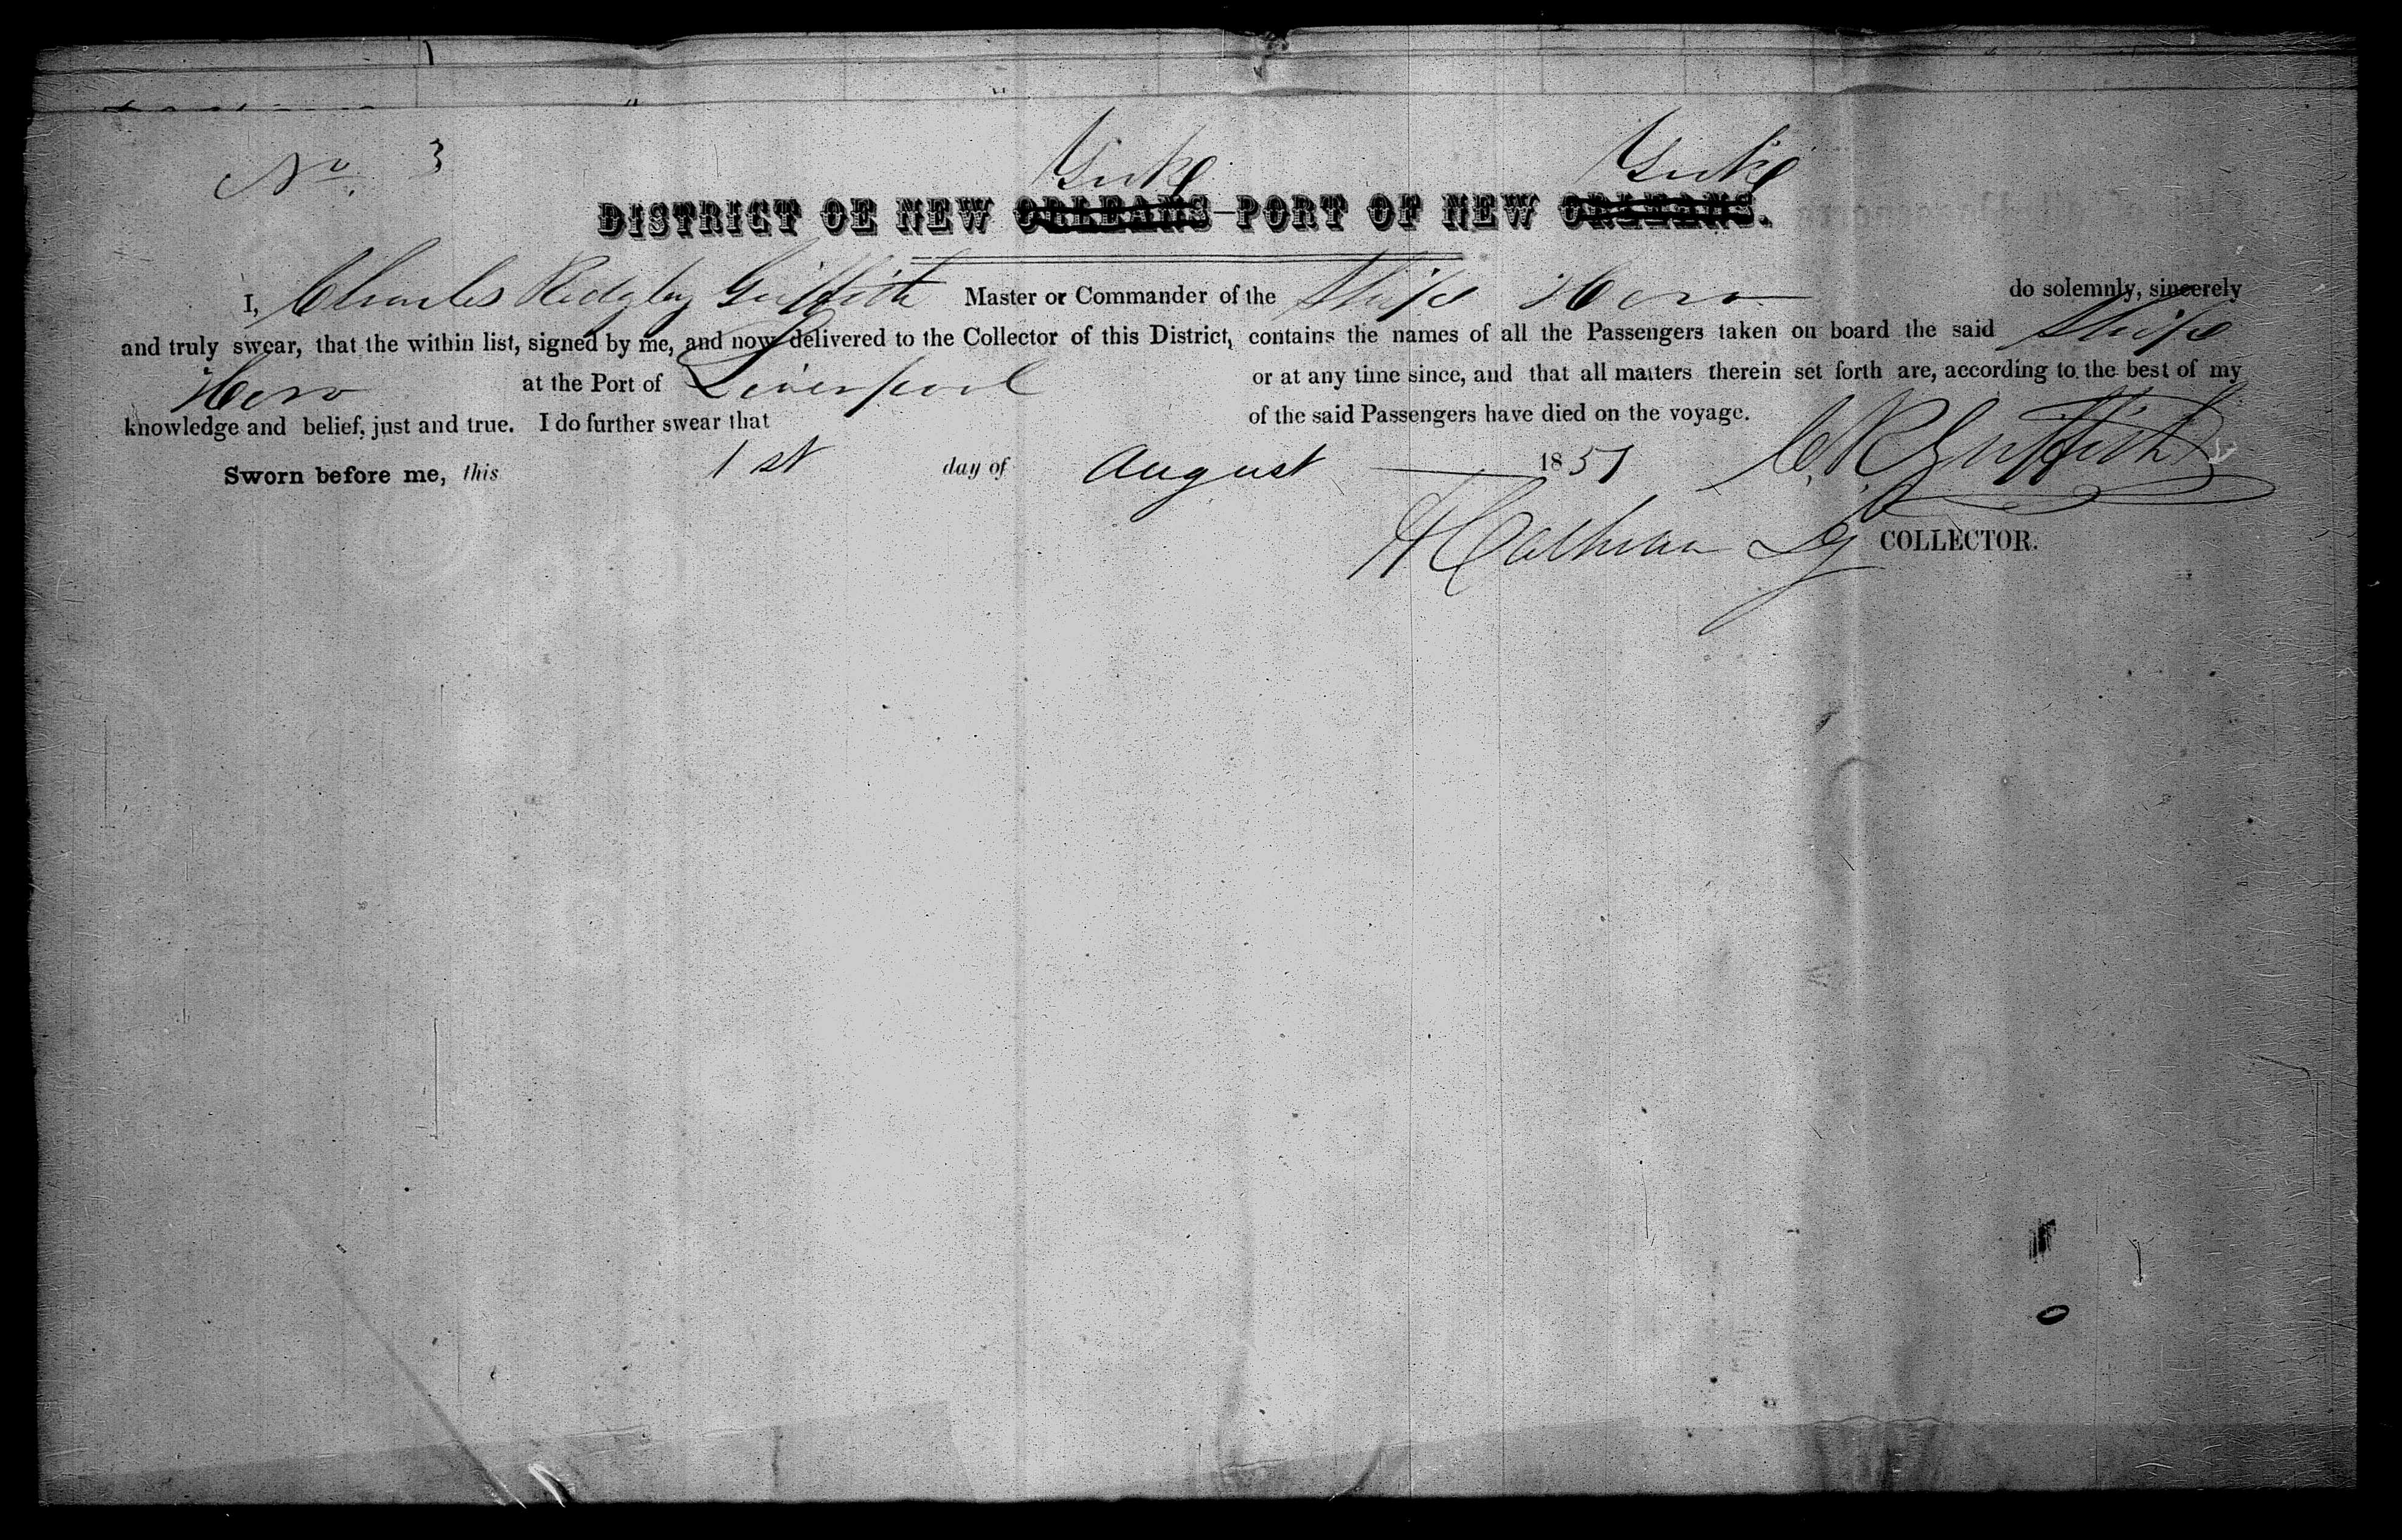 No. 3
York York
DISTRICT OF NEW ORLEANS-PORT OF NEW ORLEANS.
I, Charles Ridgley Griffith Master or Commander of the Ship Hero do solemnly, sincerely
and truly swear, that the within list, signed by me, and now delivered to the Collector of this District, contains the names of all the Passengers taken on board the said Ship
Hero at the Port of Liverpool or at any time since, and that all matters therein set forth are, according to the best of my
knowledge and belief, just and true. I do further swear that of the said Passengers have died on the voyage. C. R. Griffith
Sworn before me, this 1st day of August 1851
Calhoun Dy COLLECTOR.